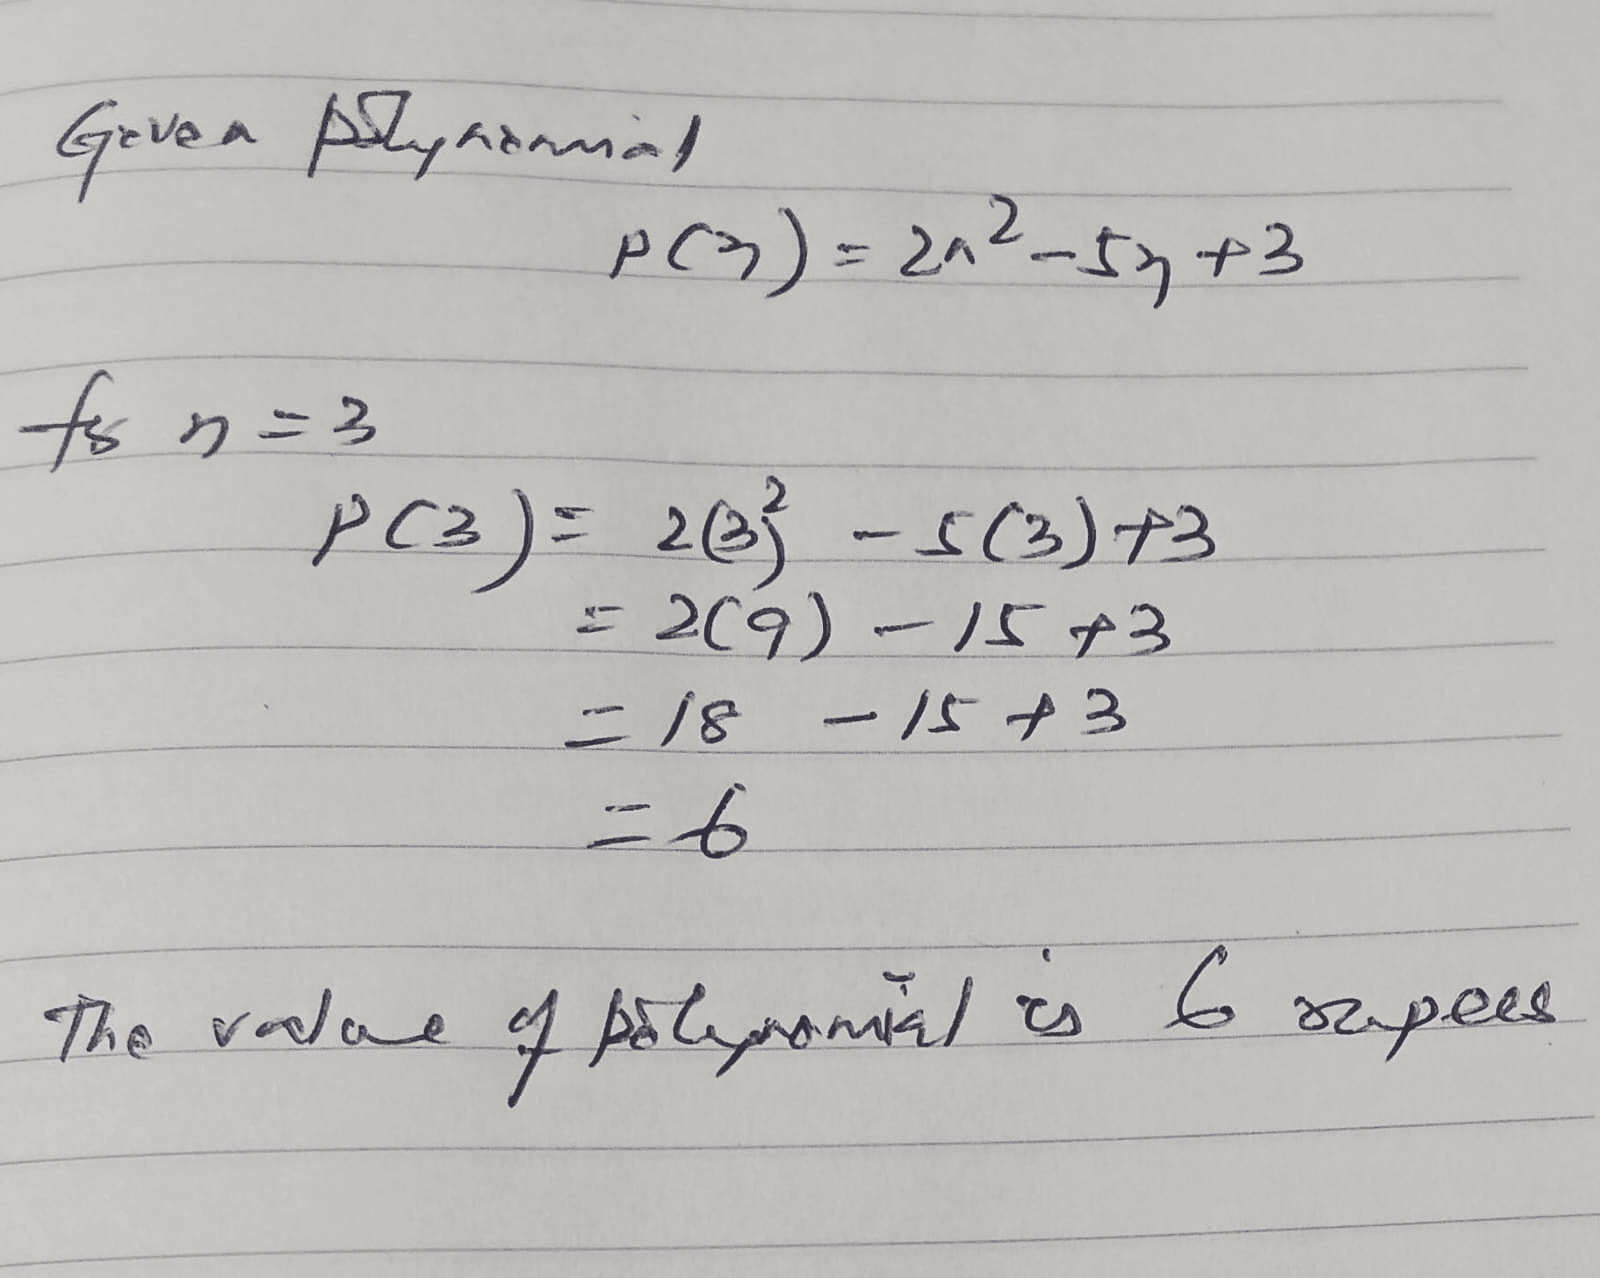 Given polynomial
P(x) = 2x² - 5x + 3
for x = 3
P(3) = 2(3)² - 5(3) + 3
= 2(9) - 15 + 3
= 18 - 15 + 3
= 6
The value of polynomial is 6 rupees